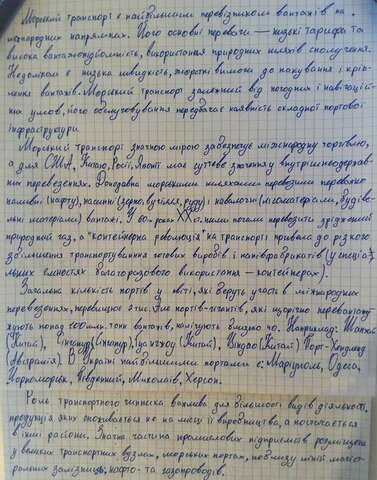 Морський транспорт є найбільшим перевізником вантажів на
міжнародних напрямках. Його основні переваги — низькі тарифи та
висока вантажопідйомність, використання природних шляхів сполучення.
Недоліком є низька швидкість, жорсткі вимоги до пакування і кріп-
лення вантажів. Морський транспорт залежний від погодних і навігацій-
них умов, його обслуговування передбачає наявність складної портової
інфраструктури.
Морський транспорт значною мірою забезпечує міжнародну торгівлю,
а для США, Китаю, Росії, Японії має суттєве значення у внутрішньодержав-
них перевезеннях. Донедавна морськими шляхами перевозили переважно
наливні (нафту), насипні (зерно, вугілля, руду) і навалочні (лісоматеріали, будіве-
льні матеріали) вантажі. У 60-роки XX ст. ними почали перевозити зріджений
природний газ, а "контейнерна революція" на транспорті привела до різкого
збільшення транспортування готових виробів і напівфабрикатів (у спеціа-
льних ємностях багаторазового використання — контейнерах).
Загальна кількість портів у світі, які беруть участь в міжнародних
перевезеннях, перевищує 2 тис. Але портів-гігантів, які щорічно перевантажу-
ють понад 100 млн. тонн вантажів, налічують близько 40. Наприклад: Шанхай
(Китай), Сінгапур (Сінгапур), Гуанчжоу (Китай), Ціндао (Китай) Порт-Хедленд
(Австралія). В Україні найбільшими портами є: Маріуполь, Одеса,
Чорноморськ, Південний, Миколаїв, Херсон.
Роль транспортного чинника важлива для більшості видів діяльності,
продукція яких споживається не на місці її виробництва, а постачається
в інші райони. Значна частина промислових підприємств розміщена
у великих транспортних вузлах, морських портах, поблизу ліній магіст-
ральних залізниць, нафто- та газопроводів.